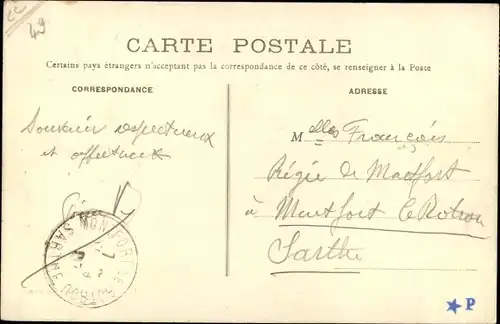 49
CARTE POSTALE
Certains pays étrangers n'acceptant pas la correspondance de ce côté, se renseigner à la Poste
CORRESPONDANCE
ADRESSE
Souvenir respectueux
et affectueux
Melles François
Régie de Montfort
à Montfort le Rotrou
Sarthe
MONTFORT-LE-ROTROU
SARTHE
P